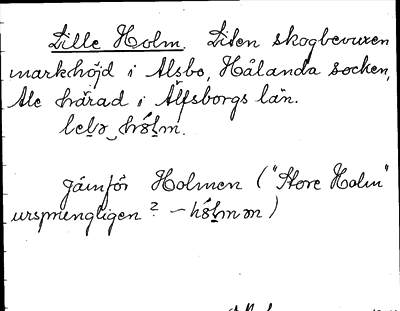 Lille Holm. Liten skogbevuxen
markhöjd i Alsbo, Hålanda socken,
Ale härad i Älfsborgs län.
Jämför Holmen ("Store Holm"
ursprungligen? —